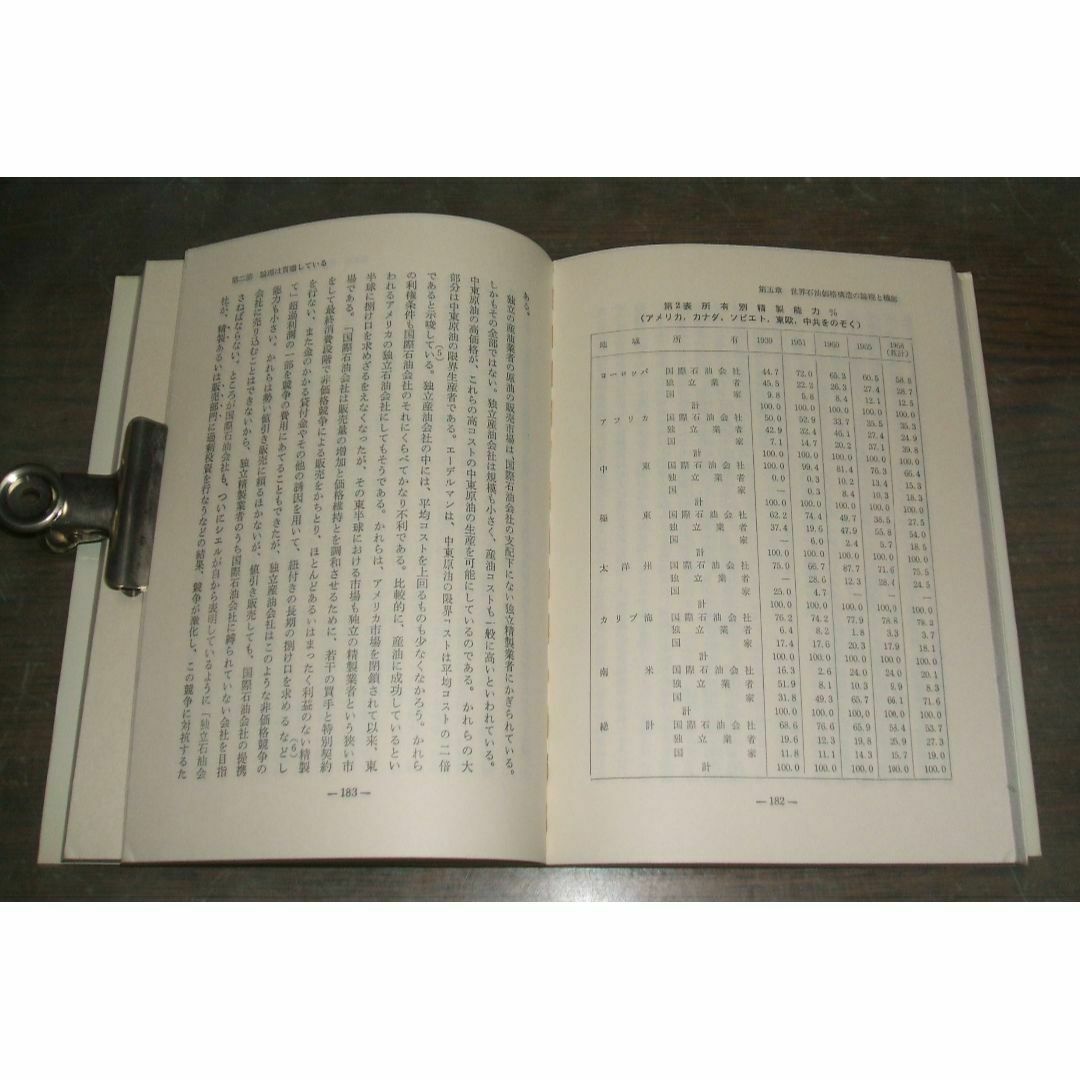 第五章 世界石油価格構造の論理と機能
第2表 所有別精製能力 %
(アメリカ，カナダ，ソビエト，東欧，中共をのぞく)
地域 所有 1939 1951 1960 1965 1968
ヨーロッパ 国際石油会社 44.7 72.0 65.3 60.5 58.8
独立業者 45.5 22.2 26.3 27.4 28.7
国家 9.8 5.8 8.4 12.1 12.5
計 100.0 100.0 100.0 100.0 100.0
アフリカ 国際石油会社 50.0 52.9 33.7 35.5 35.3
独立業者 42.9 32.4 46.1 27.4 24.9
国家 7.1 14.7 20.2 37.1 39.8
計 100.0 100.0 100.0 100.0 100.0
中東 国際石油会社 100.0 99.4 81.4 76.3 66.4
独立業者 0.0 0.3 10.2 13.4 15.3
国家 — 0.3 8.4 10.3 18.3
計 100.0 100.0 100.0 100.0 100.0
極東 国際石油会社 62.2 74.4 49.7 38.5 27.5
独立業者 37.4 19.6 47.9 55.8 54.0
国家 — 6.0 2.4 5.7 18.5
計 100.0 100.0 100.0 100.0 100.0
太洋州 国際石油会社 75.0 66.7 87.7 71.6 75.5
独立業者 — 28.6 12.3 28.4 24.5
国家 25.0 4.7 — — —
計 100.0 100.0 100.0 100.0 100.0
カリブ海 国際石油会社 76.2 74.2 77.9 78.8 78.2
独立業者 6.4 8.2 1.8 3.3 3.7
国家 17.4 17.6 20.3 17.9 18.1
計 100.0 100.0 100.0 100.0 100.0
南米 国際石油会社 16.3 2.6 24.0 24.0 20.1
独立業者 51.9 8.1 10.3 9.9 8.3
国家 31.8 49.3 65.7 66.1 71.6
計 100.0 100.0 100.0 100.0 100.0
総計 国際石油会社 68.6 76.6 65.9 58.4 53.7
独立業者 19.6 12.3 19.8 25.9 27.3
国家 11.8 11.1 14.3 15.7 19.0
計 100.0 100.0 100.0 100.0 100.0
—182—
第二節 論理は貫徹している
ある。
独立の産油業者の原油の販売市場は、国際石油会社の支配下にない独立精製業者にかぎられている。
しかもその全部ではない。独立産油会社は規模も小さく、産油コストも一般に高いといわれている。
中東原油の高価格が、これらの高コストの中東原油の生産を可能にしているのである。かれらの大
部分は中東原油の限界生産者である。エーデルマンは、中東原油の限界コストは平均コストの二倍
であると示唆している。(5)独立産油会社の中には、平均コストを上回るものも少なくなかろう。かれら
の利権条件も国際石油会社のそれにくらべてかなり不利である。比較的に、産油に成功しているとい
われるアメリカの独立石油会社にしてもそうである。かれらは、アメリカ市場を閉鎖されて以来、東
半球に捌け口を求めざるをえなくなったが、その東半球における市場も独立の精製業者という狭い市
場である。「国際石油会社は販売量の増加と価格維持とを調和させるために、若干の買手と特別契約
をして最終消費段階で非価格競争による販売をかちとり、ほとんどあるいはまったく利益のない精製
を行ない、また金のかかる貸付金やその他の誘因を用いて、紐付きの長期の捌け口を求める(6)などし
て」超過利潤の一部を競争の費用にあてることもできたが、独立産油会社はこのような非価格競争の
能力も小さい。かれらは勢い値引き販売に頼るほかないが、値引き販売しても、国際石油会社の提携
会社に売り込むことはできないから、独立精製業者のうち国際石油会社に縛られていない会社を目指
さねばならない。ところが国際石油会社も、ついにシェルが自から表明しているように「独立石油会
社が、精製あるいは販売部門に過剰投資を行なうなどの結果、競争が激化し、この競争に対抗するた
—183—